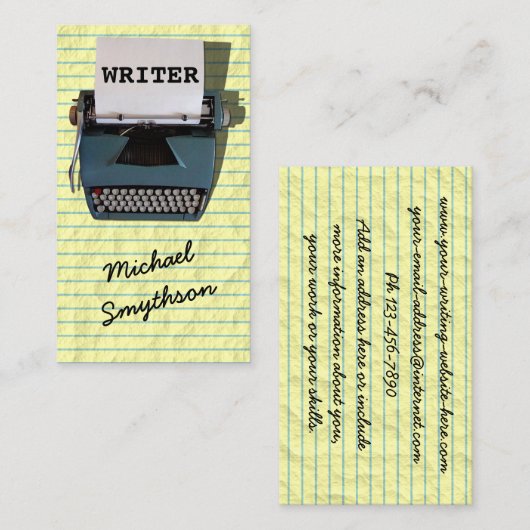 WRITER
Michael
Smythson
www.your-writing-website-here.com
your-email-address@internet.com
Ph 123-456-7890
Add an address here or include
more information about you,
your work or your skills.